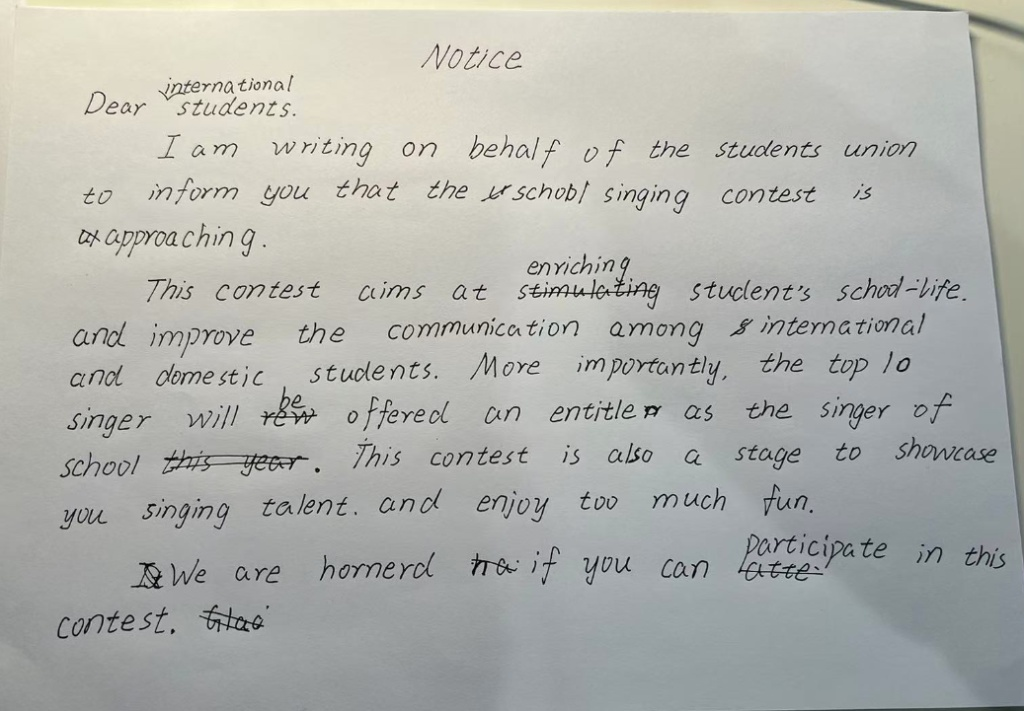 Notice
Dear international students.
I am writing on behalf of the students union
to inform you that the school singing contest is
approaching.
This contest aims at enriching student's school-life.
and improve the communication among international
and domestic students. More importantly, the top 10
singer will be offered an entitle as the singer of
school. This contest is also a stage to showcase
you singing talent. and enjoy too much fun.
We are hornerd if you can participate in this
contest.